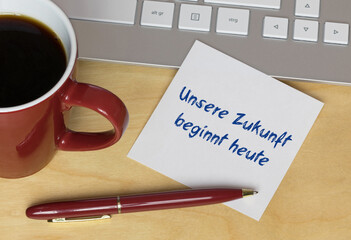 alt gr
ctrl
Unsere Zukunft
beginnt heute